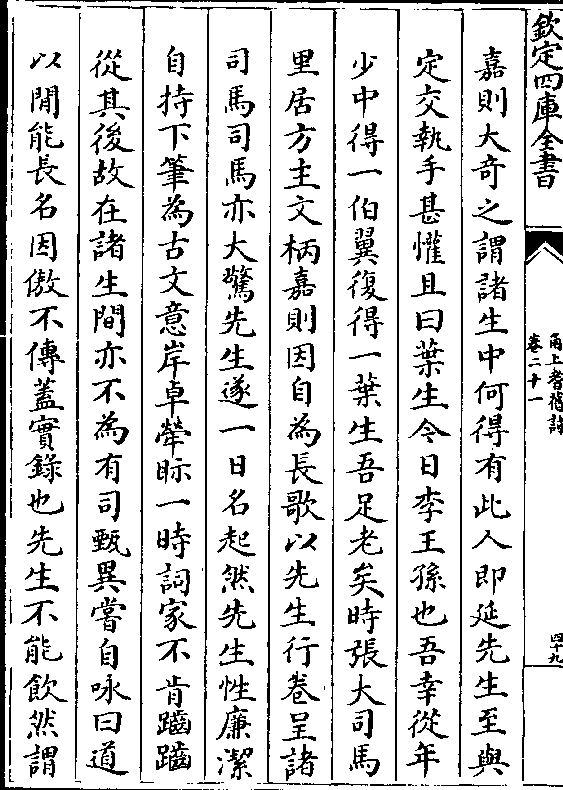 欽定四庫全書
甬上耆舊詩
卷二十一
四十九
嘉則大奇之謂諸生中何得有此人即延先生至與
定交執手甚懽且曰葉生今日李王孫也吾幸從年
少中得一伯翼復得一葉生吾足老矣時張大司馬
里居方主文柄嘉則因自為長歌以先生行卷呈諸
司馬司馬亦大驚先生遂一日名起然先生性廉潔
自持下筆為古文意岸卓犖眎一時詞家不肯躡躡
從其後故在諸生間亦不為有司甄異嘗自咏曰道
以閒能長名因傲不傳蓋實錄也先生不能飲然謂